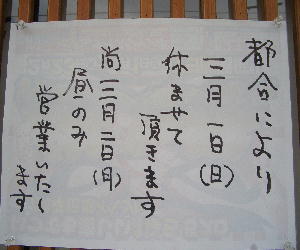 都合により
三月一日(日)
休ませて
頂きます
尚三月二日(月)
昼のみ
営業いたし
ます